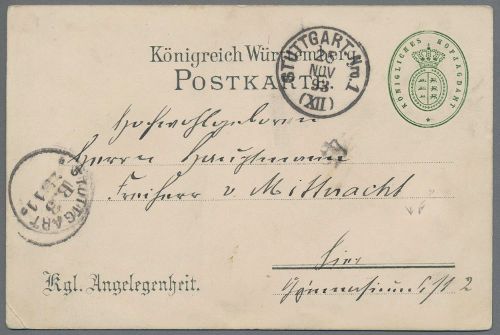 Königreich Württemberg
POSTKARTE
STUTTGART Nro. 1
25
NOV
93.
(XII)
KÖNIGLICHES HOFJAGDAMT
Hochwohlgeboren
Herrn Hauptmann
Freiherr v. Mittnacht
STUTTGART.
hier
Kgl. Angelegenheit.
Gymnasium Str. 2